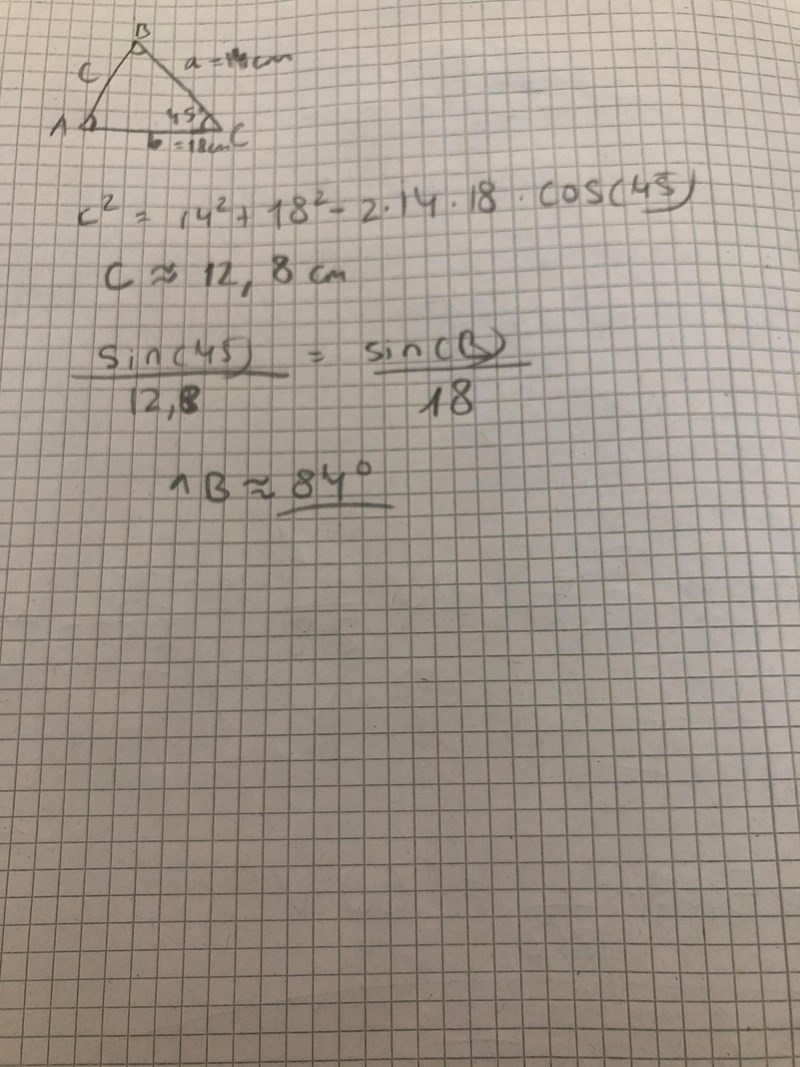 B
c
a = 14cm
A
45
C
b = 18cm
c² = 14² + 18² - 2·14·18·cos(45)
C ≈ 12,8 cm
sin(45) = sin(B)
12,8 18
^B ≈ 84°